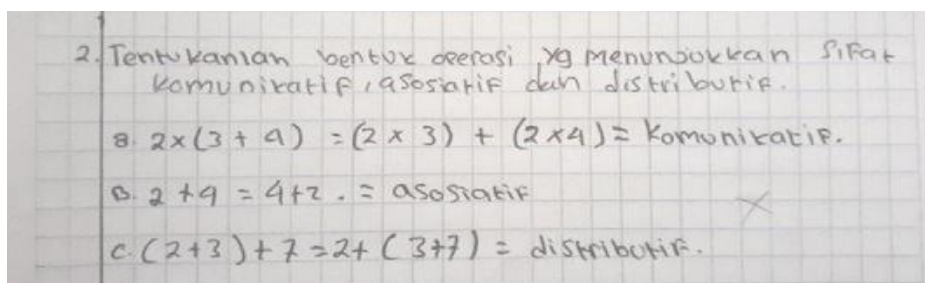 2. Tentukanlah bentuk operasi yg menunjukkan sifat
komunikatif, asosiatif dan distributif.
a. 2x(3 + 4) = (2 x 3) + (2x4) = Komunikatif.
B. 2 + 4 = 4+2 . = asosiatif
C. (2+3)+7 = 2+ (3+7) = distributif.